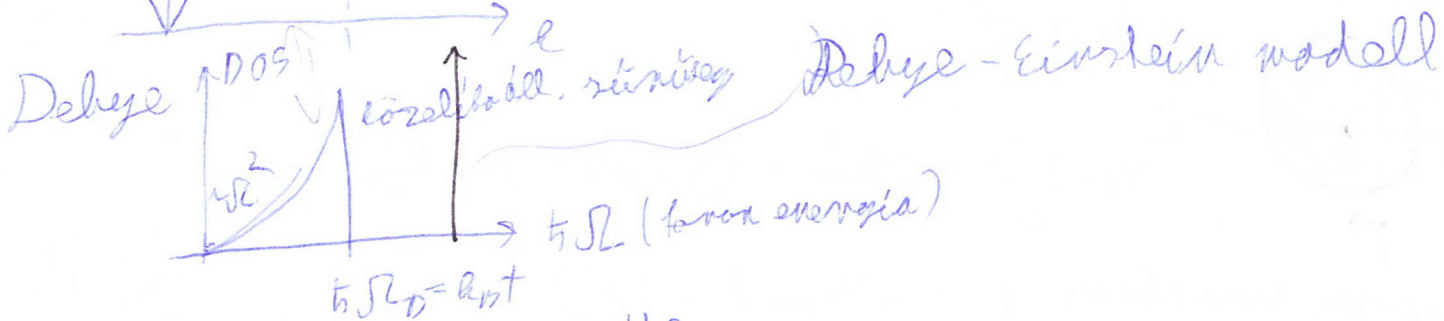 k
Debye DOS közelítő áll. sűrűség Debye-Einstein modell
~Ω²
ħΩ (fonon energia)
ħΩ_D = k_B T